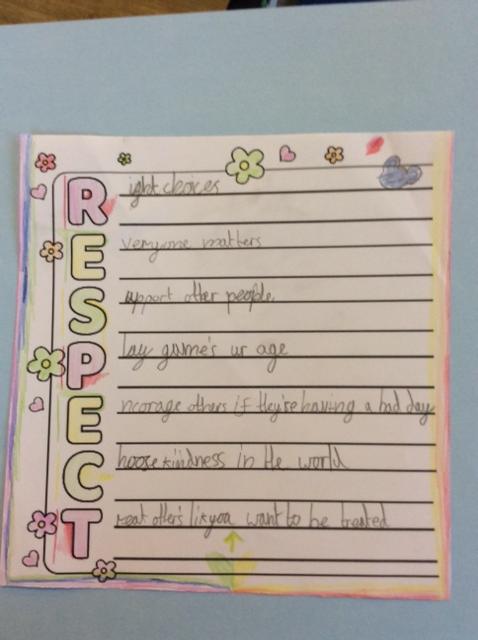 Right choices
Everyone matters
Support other people.
Play game's ur age
Encorage others if they're having a bad day
Choose kindness in the world
Treat other's lik you want to be treated